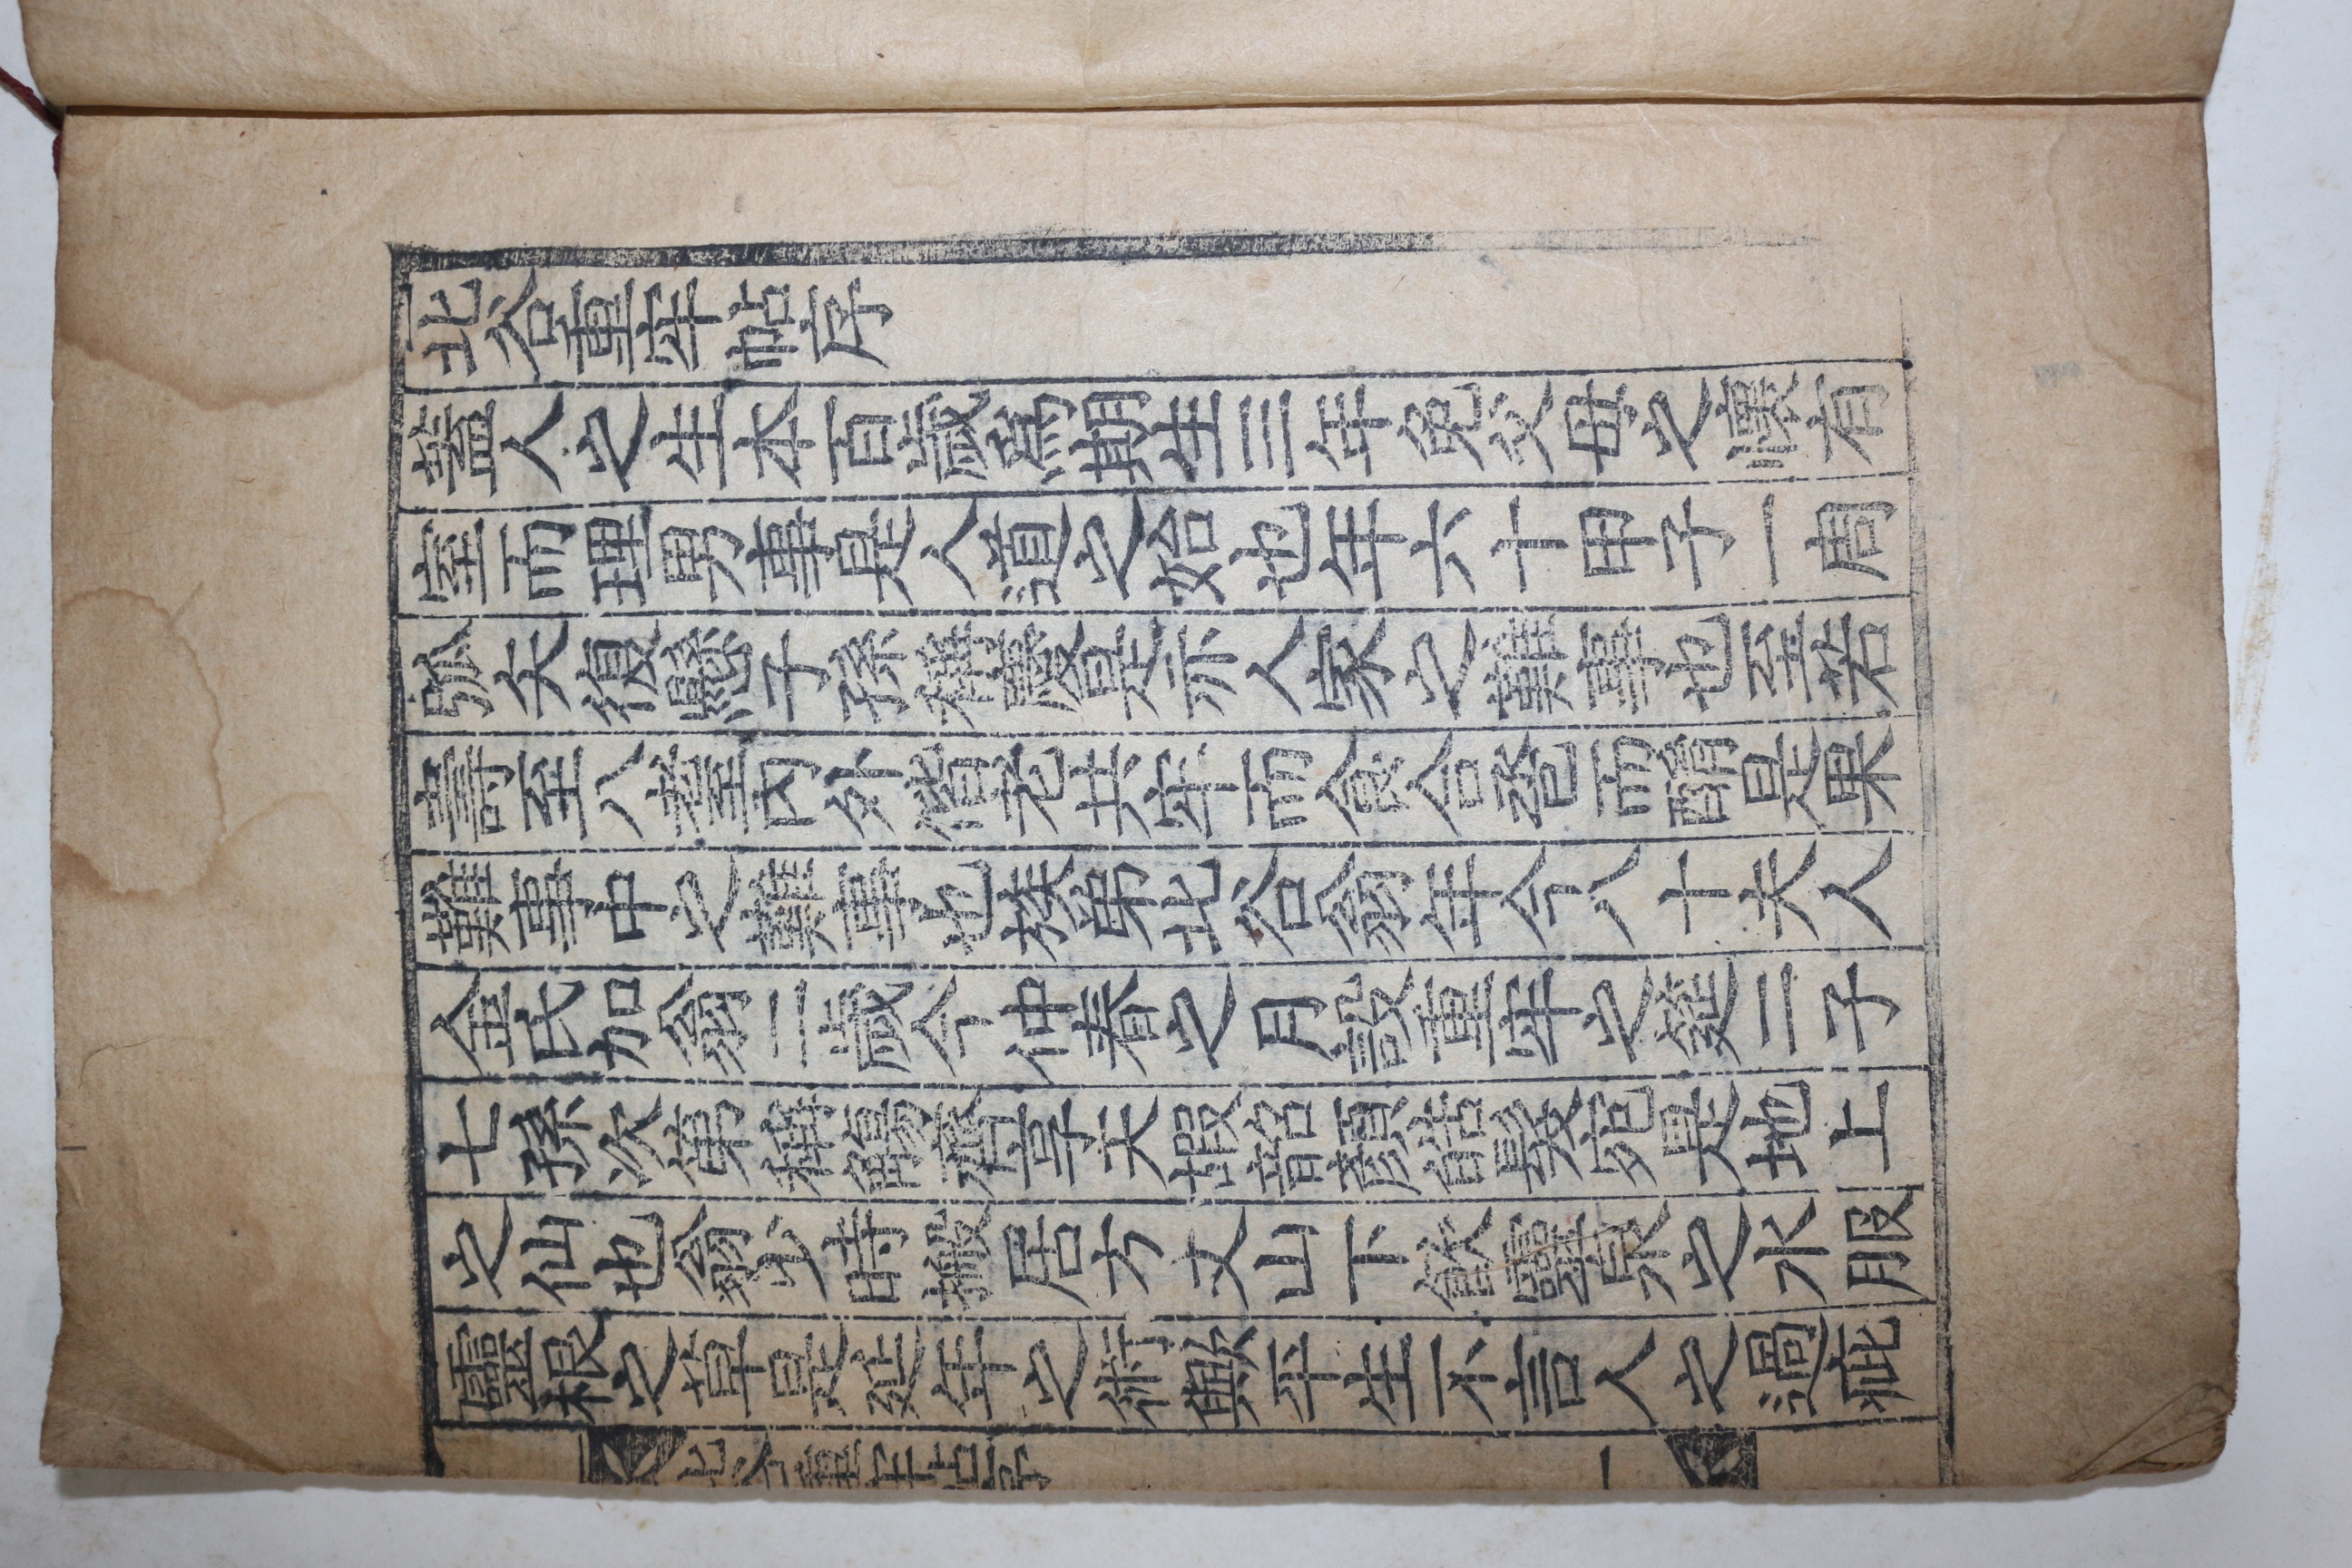 北谷重牢帖序
蓋人之生本百歲爲期生三年免父母之懷有
室而理男事是人道之始也年六十甲子一周
弧矢復懸子孫稱觴是亦人家之難事也至若
壽至八耋内外偕老共牢而食合卺而酳是果
難事中之難事也族弟北谷翁年今八十夫人
金氏加翁二歲今仲春之月設重牢之筵二子
七孫次第稱觴備享天嘏韶顏皓髮宛是地上
之仙也翁少時居方丈山下飮泉之水服
靈根之草是延年之術歟平生不言人之過疵
北谷重牢帖序 一